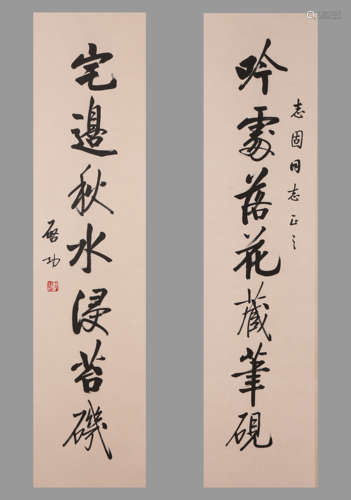 吟處落花藏筆硯
志固同志正之
宅邊秋水浸苔磯
啓功